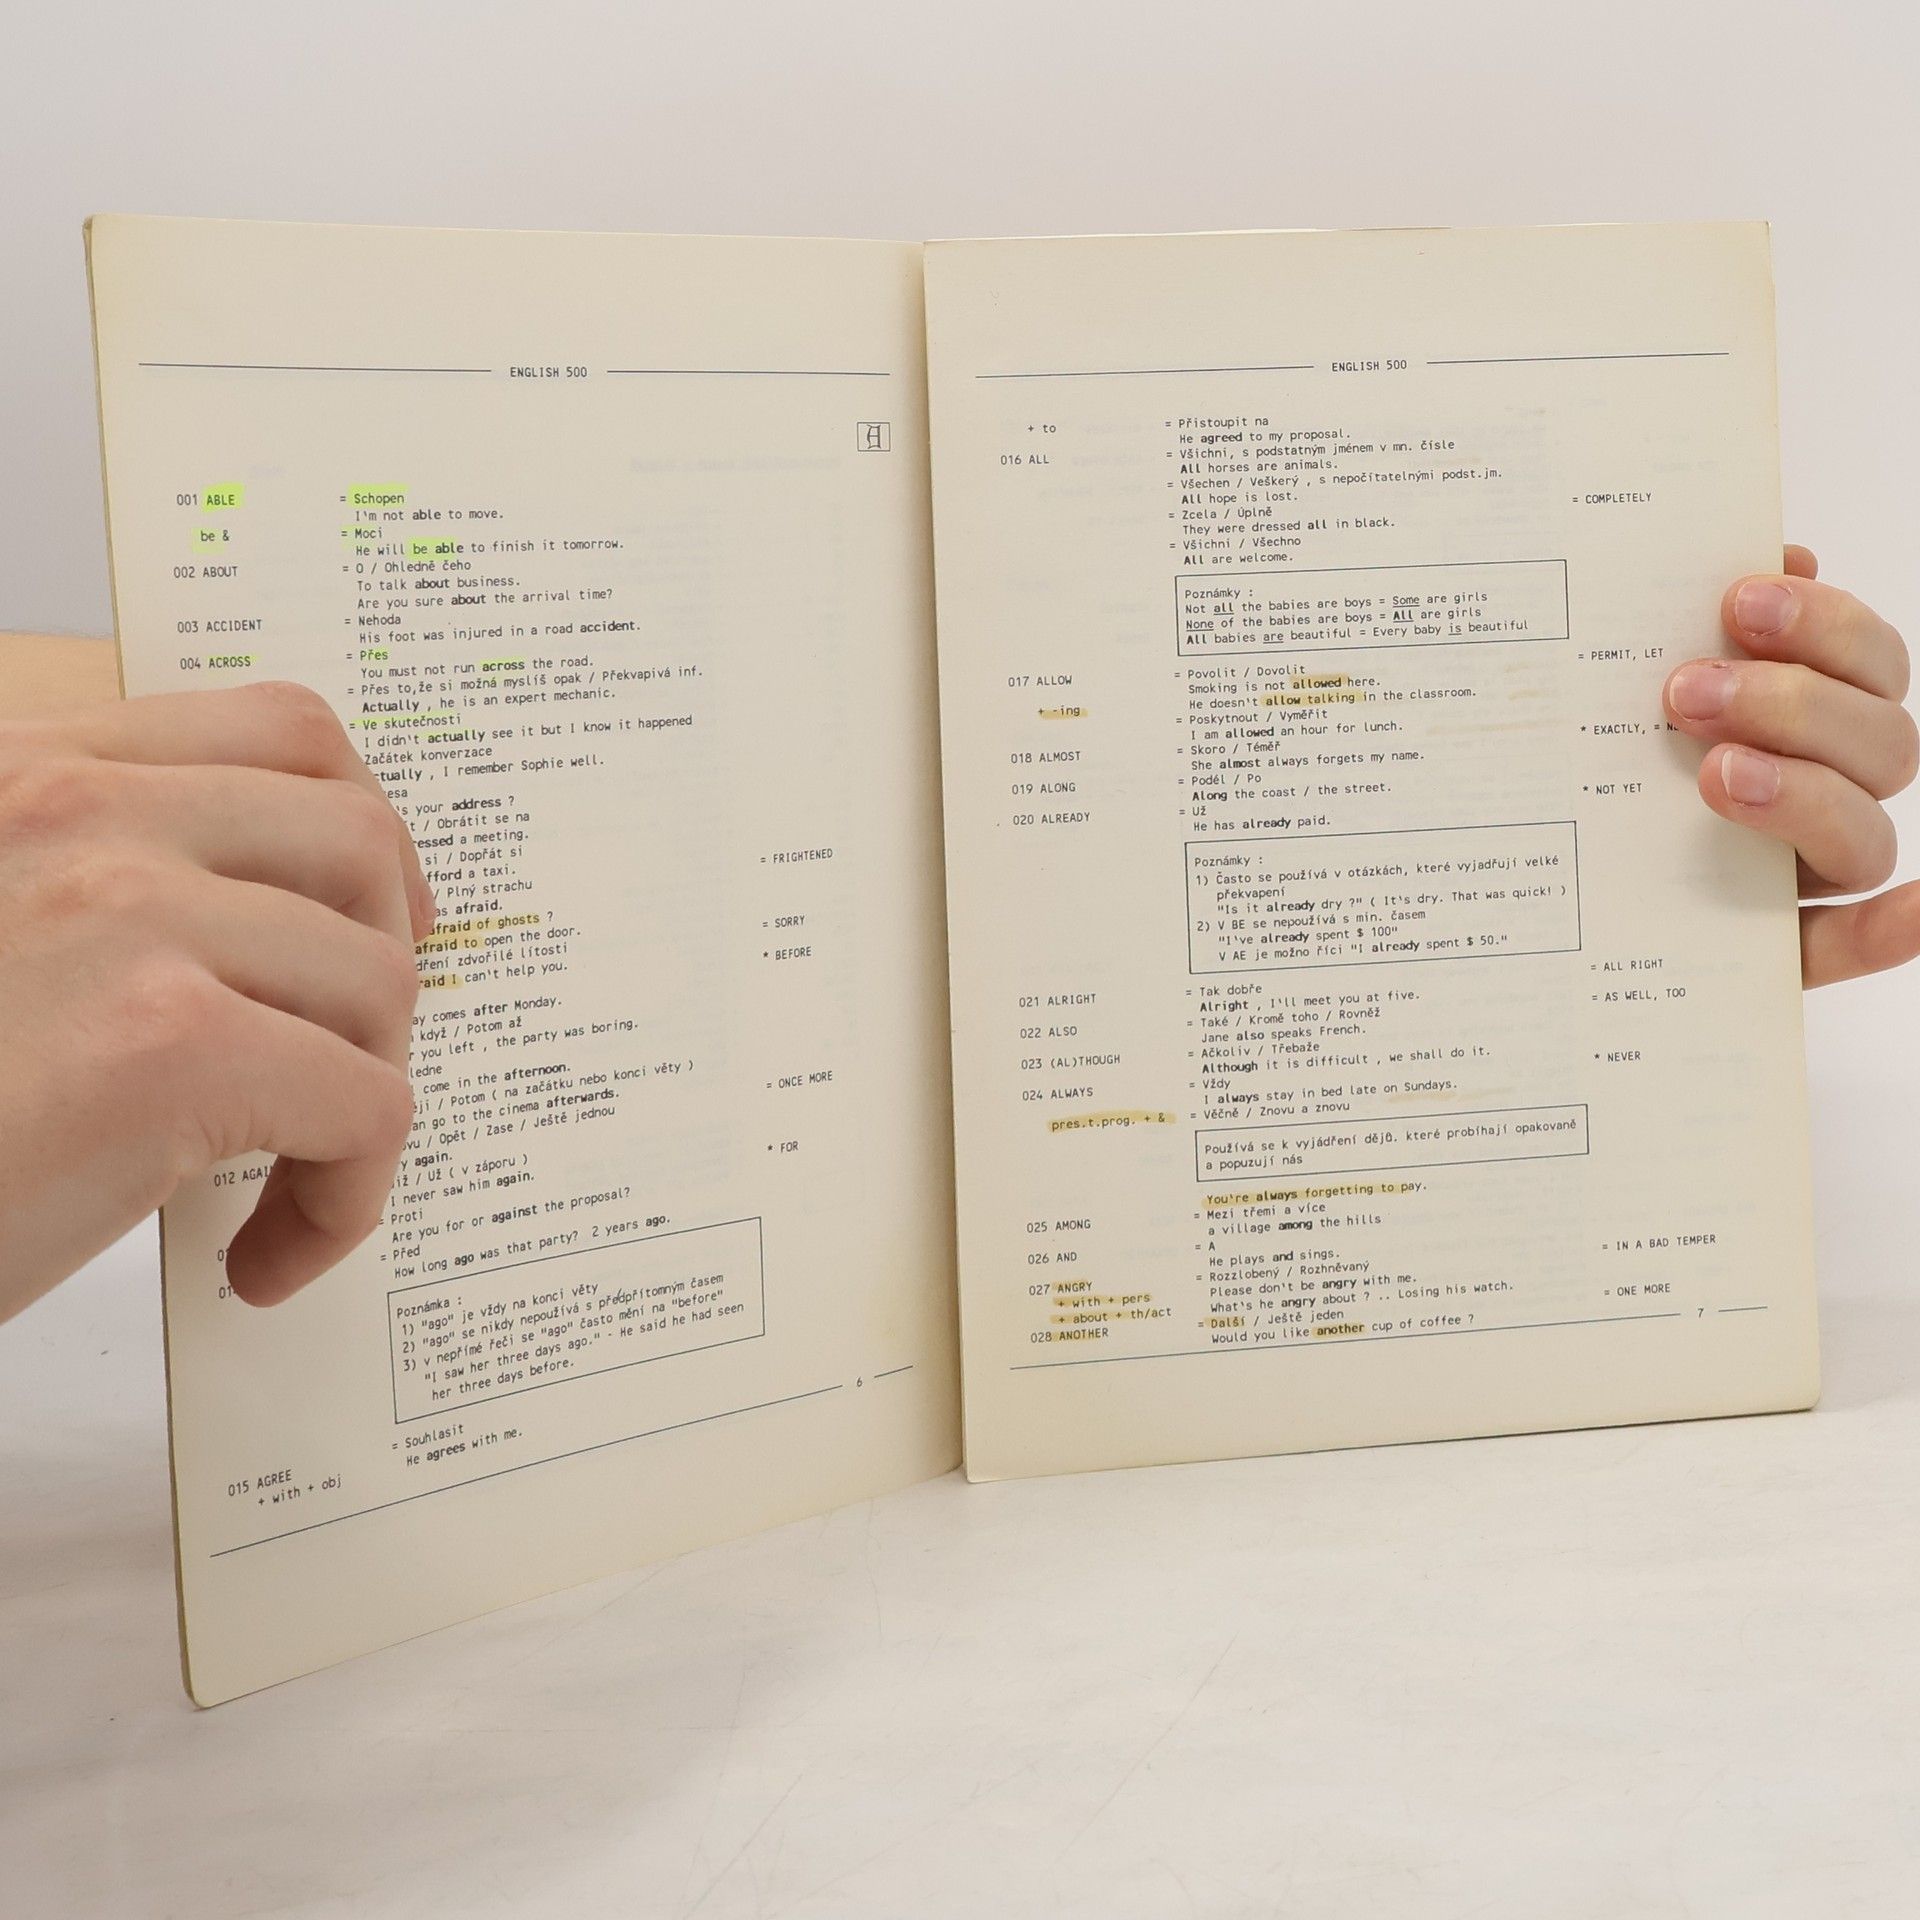 ENGLISH 500
A
001 ABLE = Schopen
I'm not able to move.
be & = Moci
He will be able to finish it tomorrow.
002 ABOUT = O / Ohledně čeho
To talk about business.
Are you sure about the arrival time?
003 ACCIDENT = Nehoda
His foot was injured in a road accident.
004 ACROSS = Přes
You must not run across the road.
= Přes to,že si možná myslíš opak / Překvapivá inf.
Actually , he is an expert mechanic.
= Ve skutečnosti
I didn't actually see it but I know it happened
Začátek konverzace
, I remember Sophie well.
your address ?
/ Obrátit se na
a meeting.
si / Dopřát si
a taxi.
/ Plný strachu = FRIGHTENED
afraid.
afraid of ghosts ?
afraid to open the door. = SORRY
zdvořilé lítosti
I can't help you. * BEFORE
comes after Monday.
když / Potom až
you left , the party was boring.
come in the afternoon.
/ Potom ( na začátku nebo konci věty )
go to the cinema afterwards.
/ Opět / Zase / Ještě jednou = ONCE MORE
again.
012 / Už ( v záporu )
I never saw him again.
= Proti * FOR
Are you for or against the proposal?
= Před
How long ago was that party? 2 years ago.
Poznámka :
1) "ago" je vždy na konci věty
2) "ago" se nikdy nepoužívá s předpřítomným časem
3) v nepřímé řeči se "ago" často mění na "before"
"I saw her three days ago." - He said he had seen
her three days before.
015 AGREE = Souhlasit
+ with + obj He agrees with me.
6
ENGLISH 500
+ to = Přistoupit na
He agreed to my proposal.
016 ALL = Všichni, s podstatným jménem v mn. čísle
All horses are animals.
= Všechen / Veškerý , s nepočítatelnými podst.jm.
All hope is lost.
= Zcela / Úplně = COMPLETELY
They were dressed all in black.
= Všichni / Všechno
All are welcome.
Poznámky :
Not all the babies are boys = Some are girls
None of the babies are boys = All are girls
All babies are beautiful = Every baby is beautiful
017 ALLOW = Povolit / Dovolit = PERMIT, LET
Smoking is not allowed here.
+ -ing He doesn't allow talking in the classroom.
= Poskytnout / Vyměřit
I am allowed an hour for lunch.
018 ALMOST = Skoro / Téměř * EXACTLY, =
She almost always forgets my name.
019 ALONG = Podél / Po
Along the coast / the street.
020 ALREADY = Už * NOT YET
He has already paid.
Poznámky :
1) Často se používá v otázkách, které vyjadřují velké
překvapení
"Is it already dry ?" ( It's dry. That was quick! )
2) V BE se nepoužívá s min. časem
"I've already spent $ 100"
V AE je možno říci "I already spent $ 50."
021 ALRIGHT = Tak dobře = ALL RIGHT
Alright , I'll meet you at five.
022 ALSO = Také / Kromě toho / Rovněž = AS WELL, TOO
Jane also speaks French.
023 (AL)THOUGH = Ačkoliv / Třebaže
Although it is difficult , we shall do it.
024 ALWAYS = Vždy * NEVER
I always stay in bed late on Sundays.
pres.t.prog. + & = Věčně / Znovu a znovu
Používá se k vyjádření dějů. které probíhají opakovaně
a popuzují nás
You're always forgetting to pay.
025 AMONG = Mezi třemi a více
a village among the hills
026 AND = A
He plays and sings.
027 ANGRY = Rozzlobený / Rozhněvaný = IN A BAD TEMPER
+ with + pers Please don't be angry with me.
+ about + th/act What's he angry about ? .. Losing his watch.
028 ANOTHER = Další / Ještě jeden = ONE MORE
Would you like another cup of coffee ?
7